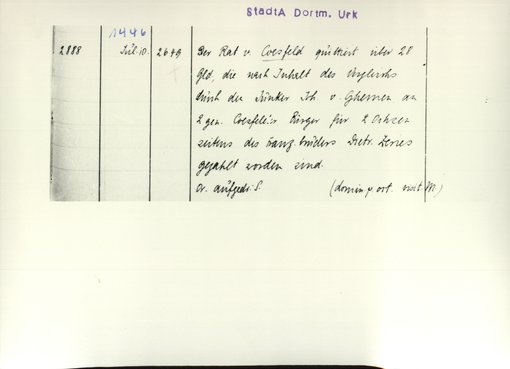 StadtA Dortm. Urk
1446
2888 Juli 10. 2649 Der Rat v. Coesfeld quittiert über 28
Gld, die nach Inhalt des Vergleichs
durch den Junker Joh. v. Ghemen an
2 gen. Coesfeld'r Bürger für 2 Ochsen
seitens des Dietr.
gezahlt worden sind.
Or. aufgedr. S. (domin. p. oct. visit. M.)